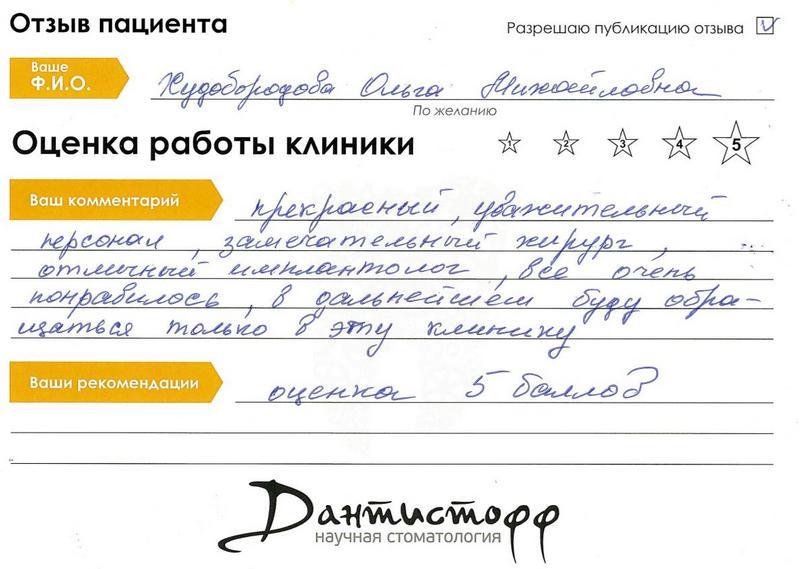 Отзыв пациента
Разрешаю публикацию отзыва
Ваше
Ф.И.О.
Худобородова Ольга Михайловна
По желанию
Оценка работы клиники
1 2 3 4 5
Ваш комментарий
прекрасный, уважительный
персонал, замечательный хирург,
отличный имплантолог, все очень
понравилось, в дальнейшем буду обра-
щаться только в эту клинику
Ваши рекомендации
оценка 5 баллов
Дантистофф
научная стоматология